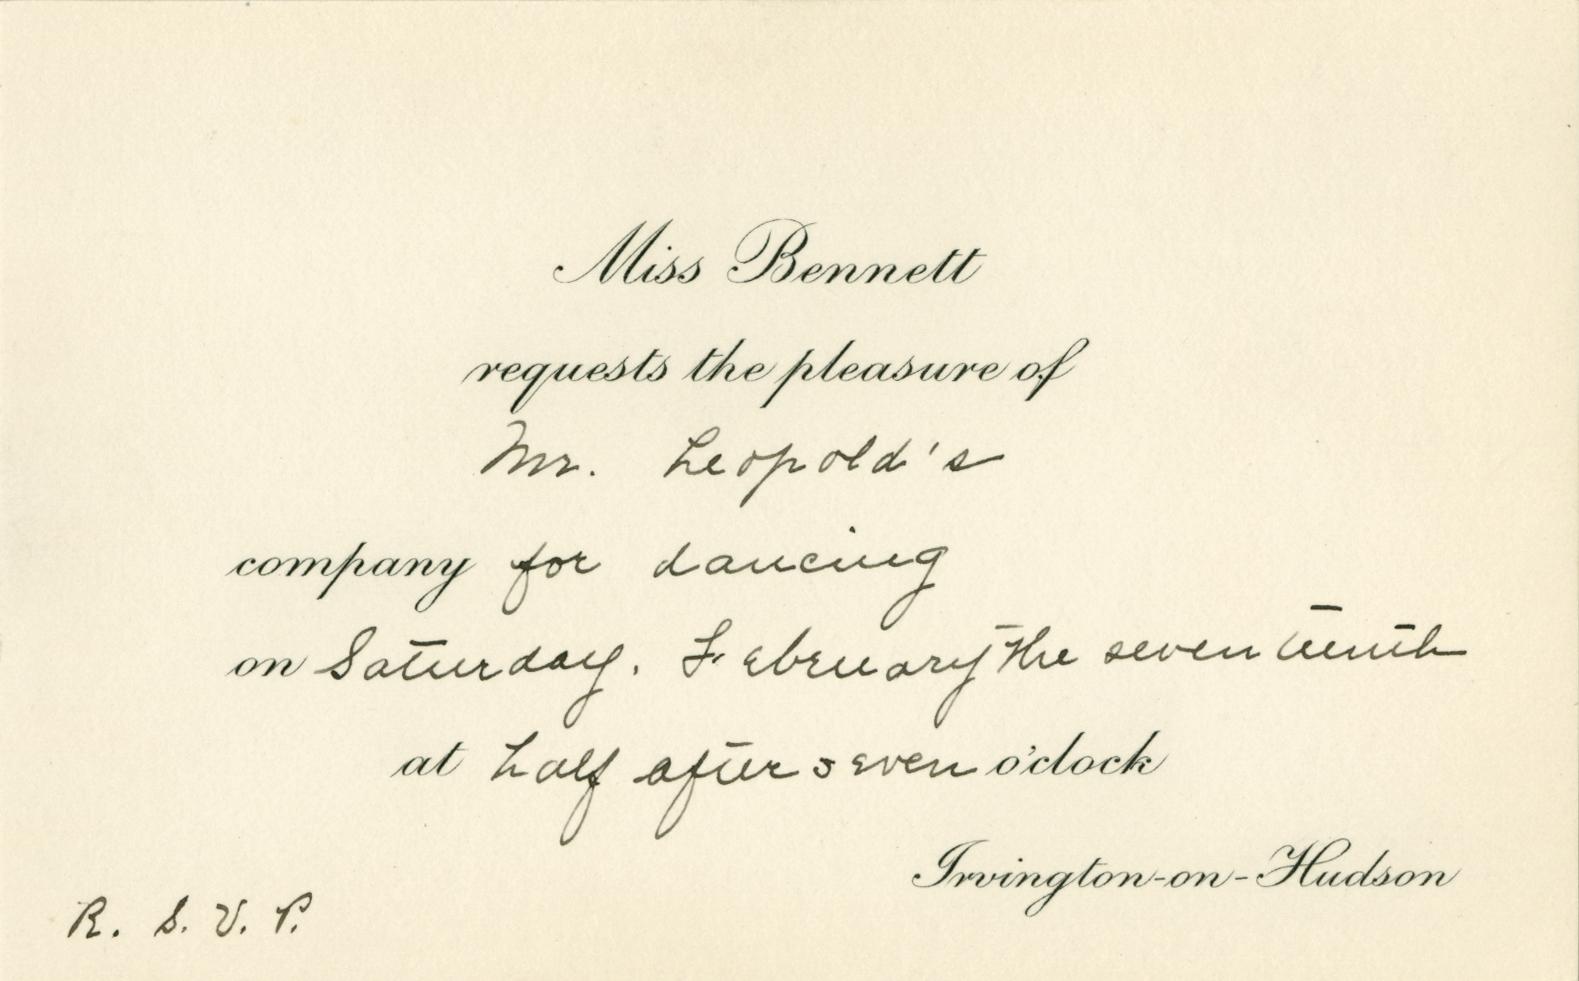 Miss Bennett
requests the pleasure of
Mr. Leopold's
company for dancing
on Saturday, February the seventeenth
at half after seven o'clock
Irvington-on-Hudson
R. S. V. P.